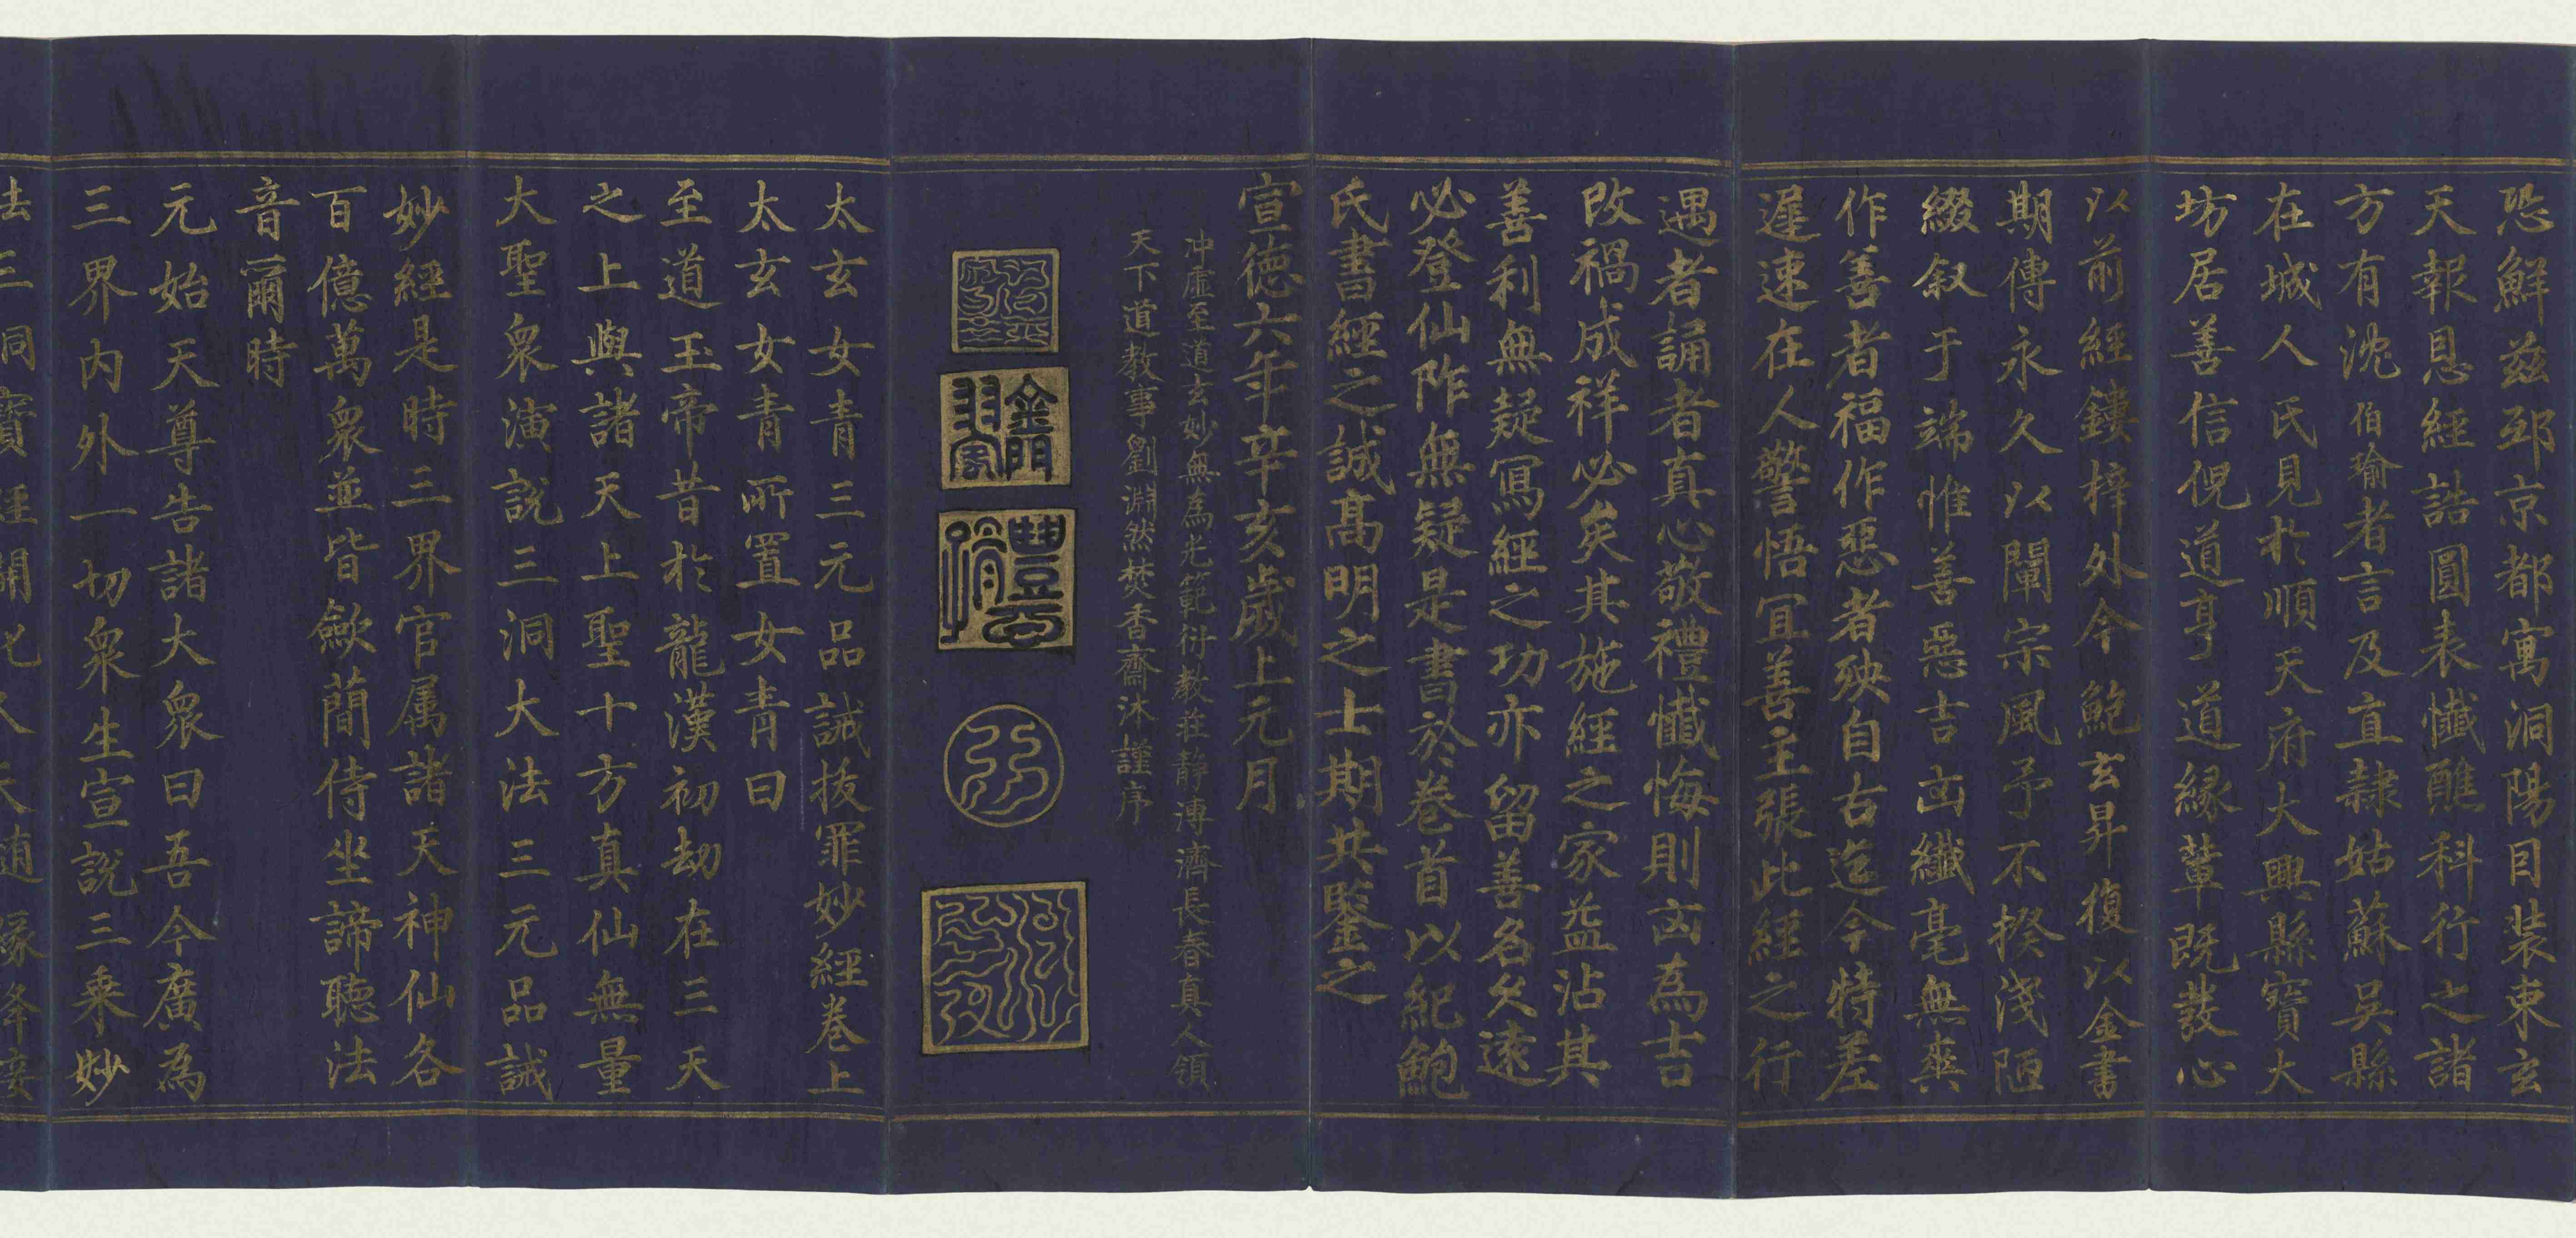 恐鮮茲邳京都寓洞陽目裝東玄
天報恩經誥圓表懺醮科行之諸
方有沈伯瑜者言及直隸姑蘇吳縣
在城人氏見於順天府大興縣寶大
坊居善信倪道亨道緣輩既發心
以前經鏤梓外今鮑玄昇復以金書
期傳永久以闡宗風予不揆淺陋
綴叙于端惟善惡吉凶纖毫無爽
作善者福作惡者殃自古迄今特差
遲速在人警悟冝善主張此經之行
遇者誦者真心敬禮懺悔則凶為吉
改禍成祥必矣其施經之家益沾其
善利無疑冩經之功亦留善名久遠
必登仙阼無疑是書於卷首以紀鮑
氏書經之誠髙明之士期共鑒之
宣徳六年辛亥歲上元月
沖虛至道玄妙無為光範衍教莊靜溥濟長春真人領
天下道教事劉淵然焚香齋沐謹序
太玄女青三元品誡拔罪妙經卷上
太玄女青所置女青曰
至道玉帝昔於龍漢初劫在三天
之上與諸天上聖十方真仙無量
大聖衆演說三洞大法三元品誡
妙經是時三界官属諸天神仙各
百億萬衆並皆歛蕳侍坐諦聽法
音爾時
元始天尊告諸大衆曰吾今廣為
三界内外一切衆生宣說三乘妙
法三洞寶經開化人天逍緣降